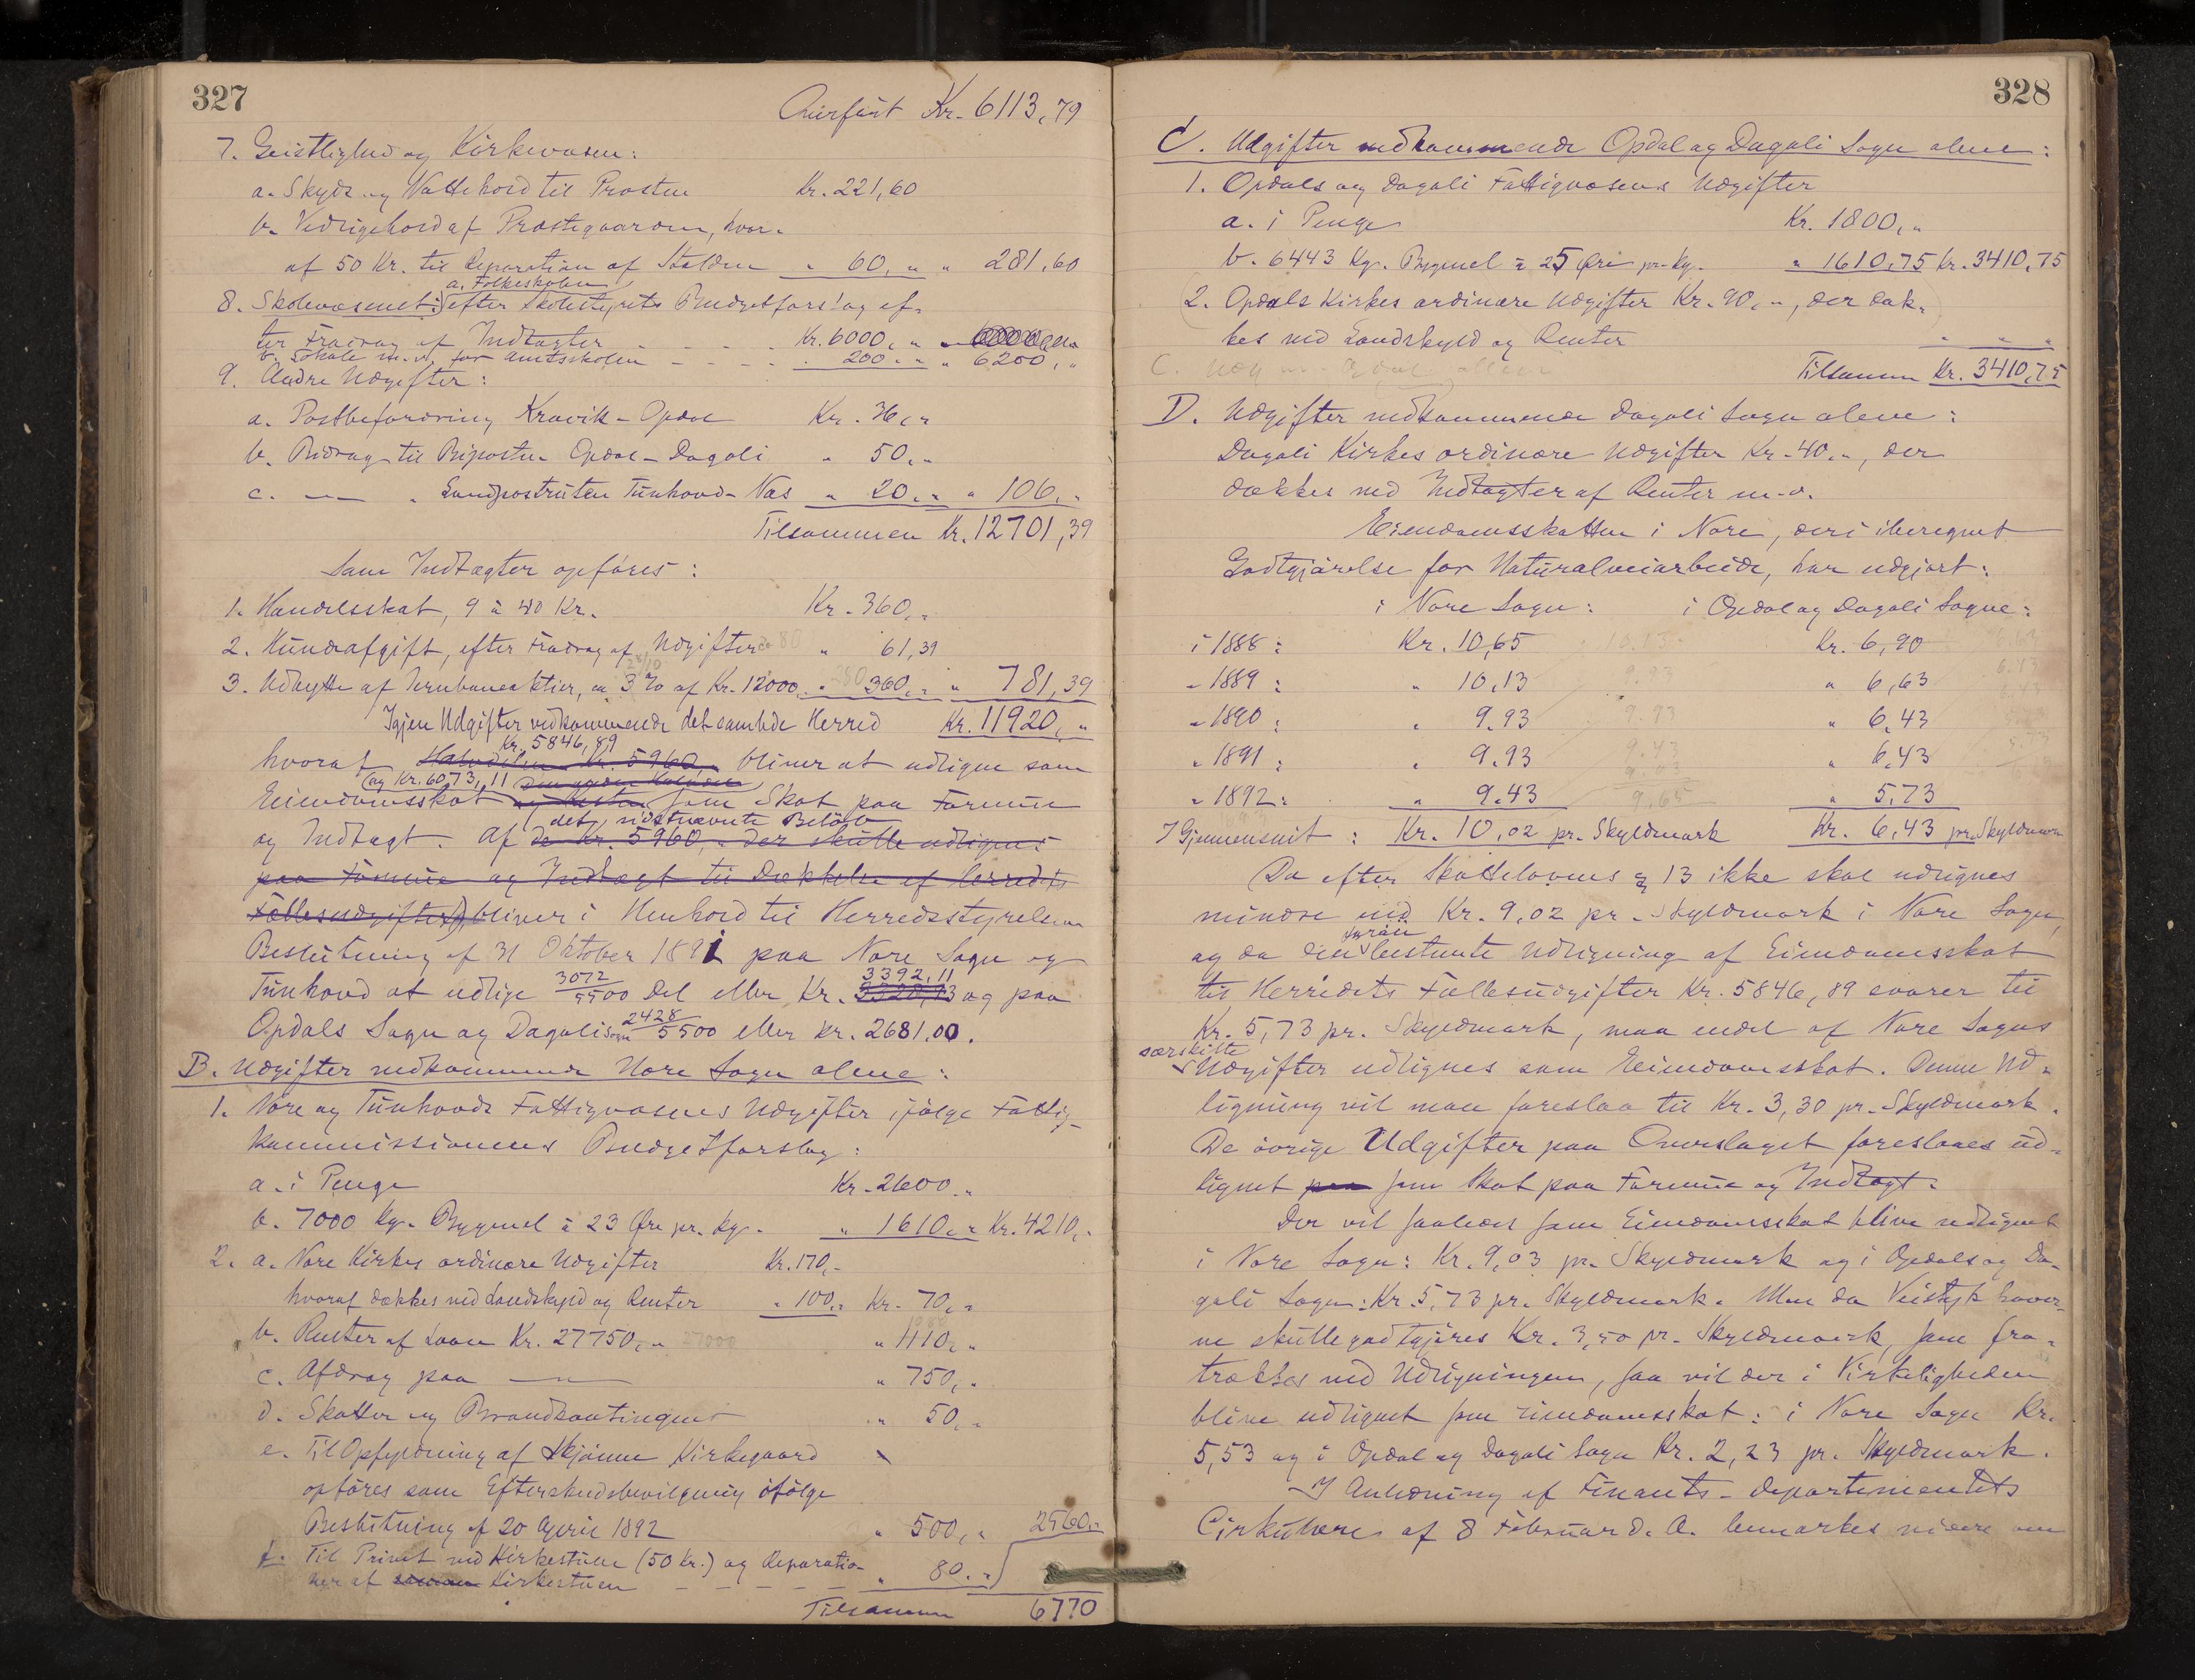 327
Overført Kr. 6113,79
7. Geistlighed og Kirkevæsen:
a. Skyds og Nattehold til Prosten Kr. 221,60
b. Vedligehold af Præstegaarden, hvor-
af 50 Kr. til Reparation af Stalden " 60," " 281,60
a. Folkeskolen
8. Skolevæsenet: efter Skolestyrets Budgetforslag ef-
ter Fradrag af Indtægter - - - - Kr. 6000,"
b. Lokale m.v. for Amtsskolen - - - - " 200," " 6200,"
9. Andre Udgifter:
a. Postbefordring Kravik-Opdal Kr. 36,"
b. Bidrag til Biposten Opdal-Dagali " 50,"
c. — " Landpostruten Tunhovd-Næs " 20," " 106,"
Tilsammen Kr. 12701,39
Som Indtægter opføres:
1. Handelsskat, 9 à 40 Kr. Kr. 360,"
2. Hundeafgift, efter Fradrag af Udgifter " 61,39
3. Udbytte af Jernbaneaktier, ca 3 % af Kr. 12000," " 360," " 781,39
Igjen Udgifter vedkommende det samlede Herred Kr. 11920,"
Kr. 5846,89
hvoraf Halvdelen Kr. 5960, bliver at udligne som
og Kr. 6073,11 den anden Halvdel
Eiendomsskat og Resten som Skat paa Formue
det sidstnævnte Beløb
og Indtægt. Af de Kr. 5960," der skulle udlignes
paa Formue og Indtægt til Dækkelse af Herredets
Fællesudgifter, bliver i Henhold til Herredsstyrelsens
Beslutning af 31 Oktober 1891 paa Nore Sogn og
Tunhovd at udligne 3072/5500 Del eller Kr. 3392,11 og paa
Opdals Sogn og Dagali Sogn 2428/5500 eller Kr. 2681,00.
B. Udgifter vedkommende Nore Sogn alene:
1. Nore og Tunhovds Fattigvæsens Udgifter ifølge Fattig-
kommissionens Budgetforslag:
a. i Penge Kr. 2600,"
b. 7000 kg. Bygmel à 23 Øre pr. kg. " 1610," Kr. 4210,"
2. a. Nore Kirkes ordinære Udgifter Kr. 170,"
hvoraf dækkes ved Landskyld og Renter " 100," Kr. 70,"
b. Renter af Laan Kr. 27750," " 1110,"
c. Afdrag paa — " 750,"
d. Skatter og Brandkontingent " 50,"
e. Til Opfyldning af Skjønne Kirkegaard
opføres som Efterskudsbevilgning ifølge
Beslutning af 20 April 1892 " 500," 2560,"
f. Til Privet ved Kirkestuen (50 Kr.) og Reparatio-
ner af Kirkestuen - - - - - " 80,"
Tilsammen 6770
328
C. Udgifter vedkommende Opdal og Dagali Sogn alene:
1. Opdals og Dagali Fattigvæsens Udgifter
a. i Penge Kr. 1800,"
b. 6443 Kg. Bygmel à 25 Øre pr. Kg. " 1610,75 Kr. 3410,75
2. Opdals Kirkes ordinære Udgifter Kr. 90,", der dæk-
kes ved Landskyld og Renter " " "
Tilsammen Kr. 3410,75
D. Udgifter vedkommende Dagali Sogn alene:
Dagali Kirkes ordinære Udgifter Kr. 40,", der
dækkes ved Indtægter af Renter m.v.
Eiendomsskatten i Nore, deri iberegnet
Godtgjørelse for Naturalveiarbeide, har udgjort:
i Nore Sogn: i Opdal og Dagali Sogne:
i 1888: Kr. 10,65 Kr. 6,90
" 1889: " 10,13 " 6,63
" 1890: " 9,93 " 6,43
" 1891: " 9,93 " 6,43
" 1892: " 9,43 " 5,73
I Gjennemsnit: Kr. 10,02 pr. Skyldmark Kr. 6,43 pr. Skyldmark
Da efter Skattelovens § 13 ikke skal udlignes
mindre end Kr. 9,02 pr. Skyldmark i Nore Sogn,
foran
og da den bestemte Udligning af Eiendomsskat
til Herredets Fællesudgifter Kr. 5846,89 svarer til
Kr. 5,73 pr. Skyldmark, maa endel af Nore Sogns
særskilte
Udgifter udlignes som Eiendomsskat. Denne Ud-
ligning vil man foreslaa til Kr. 3,30 pr. Skyldmark.
De øvrige Udgifter paa Overslaget foreslaaes ud-
lignet paa som Skat paa Formue og Indtægt.
Der vil saaledes som Eiendomsskat blive udlignet
i Nore Sogn: Kr. 9,03 pr. Skyldmark og i Opdals og Da-
gali Sogn: Kr. 5,73 pr. Skyldmark. Men da Veistykhaver-
ne skulle godtgjøres Kr. 3,50 pr. Skyldmark, som fra-
trækkes ved Udligningen, saa vil der i Virkeligheden
blive udlignet som Eiendomsskat: i Nore Sogn Kr.
5,53 og i Opdal og Dagali Sogn Kr. 2,23 pr. Skyldmark.
I Anledning af Finants-Departementets
Cirkulære af 8 Februar d. A. bemærkes videre om